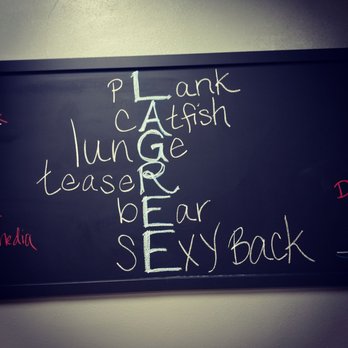 pLank
cAtfish
lunGe
teaseR
bEar
sExy Back
media
D